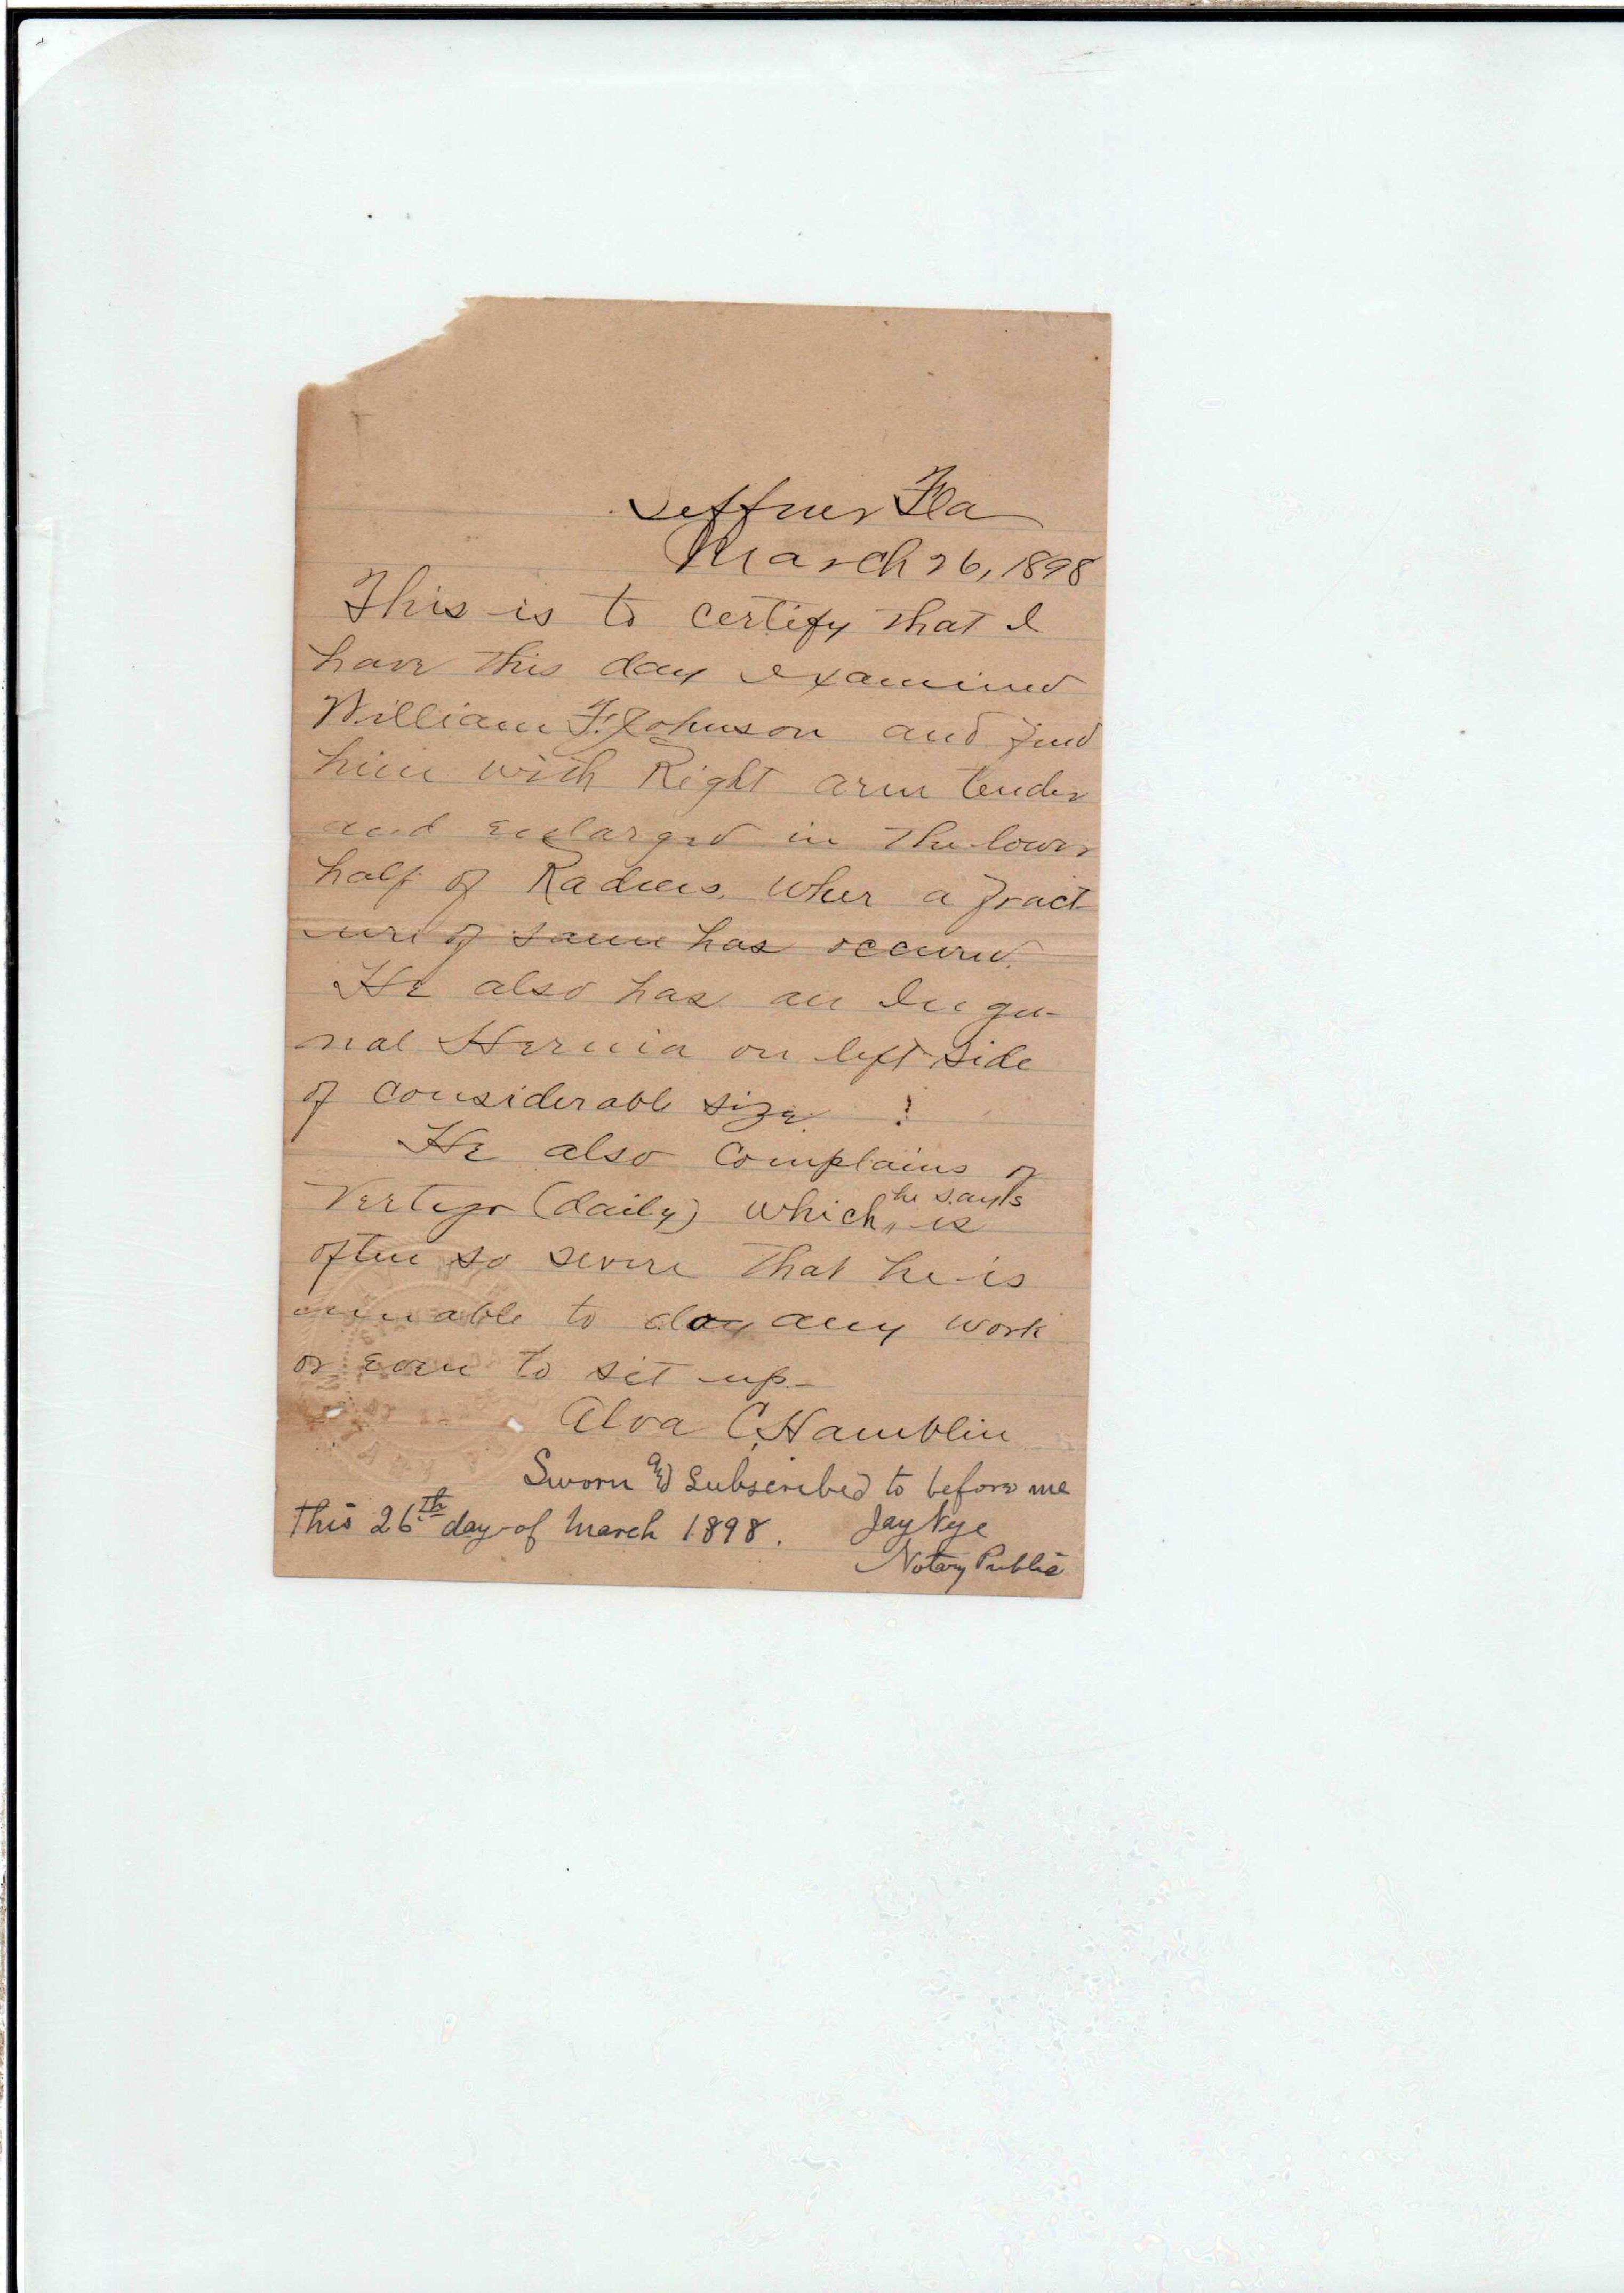 Seffner Fla
March 26, 1898
This is to certify that I
have this day examined
William F. Johnson and find
him with Right arm tender
and enlarged in the lower
half of Radius, wher a fract
ure of same has occured.
He also has an Ingu-
nal Hernia on left side
of considerable size.
He also complains of
Vertigo (daily) which he says is
often so severe that he is
unable to do any work
or even to sit up-
Alva C. Hamblin
Sworn and Subscribed to before me
this 26th day of March 1898. Jay Nye
Notary Public